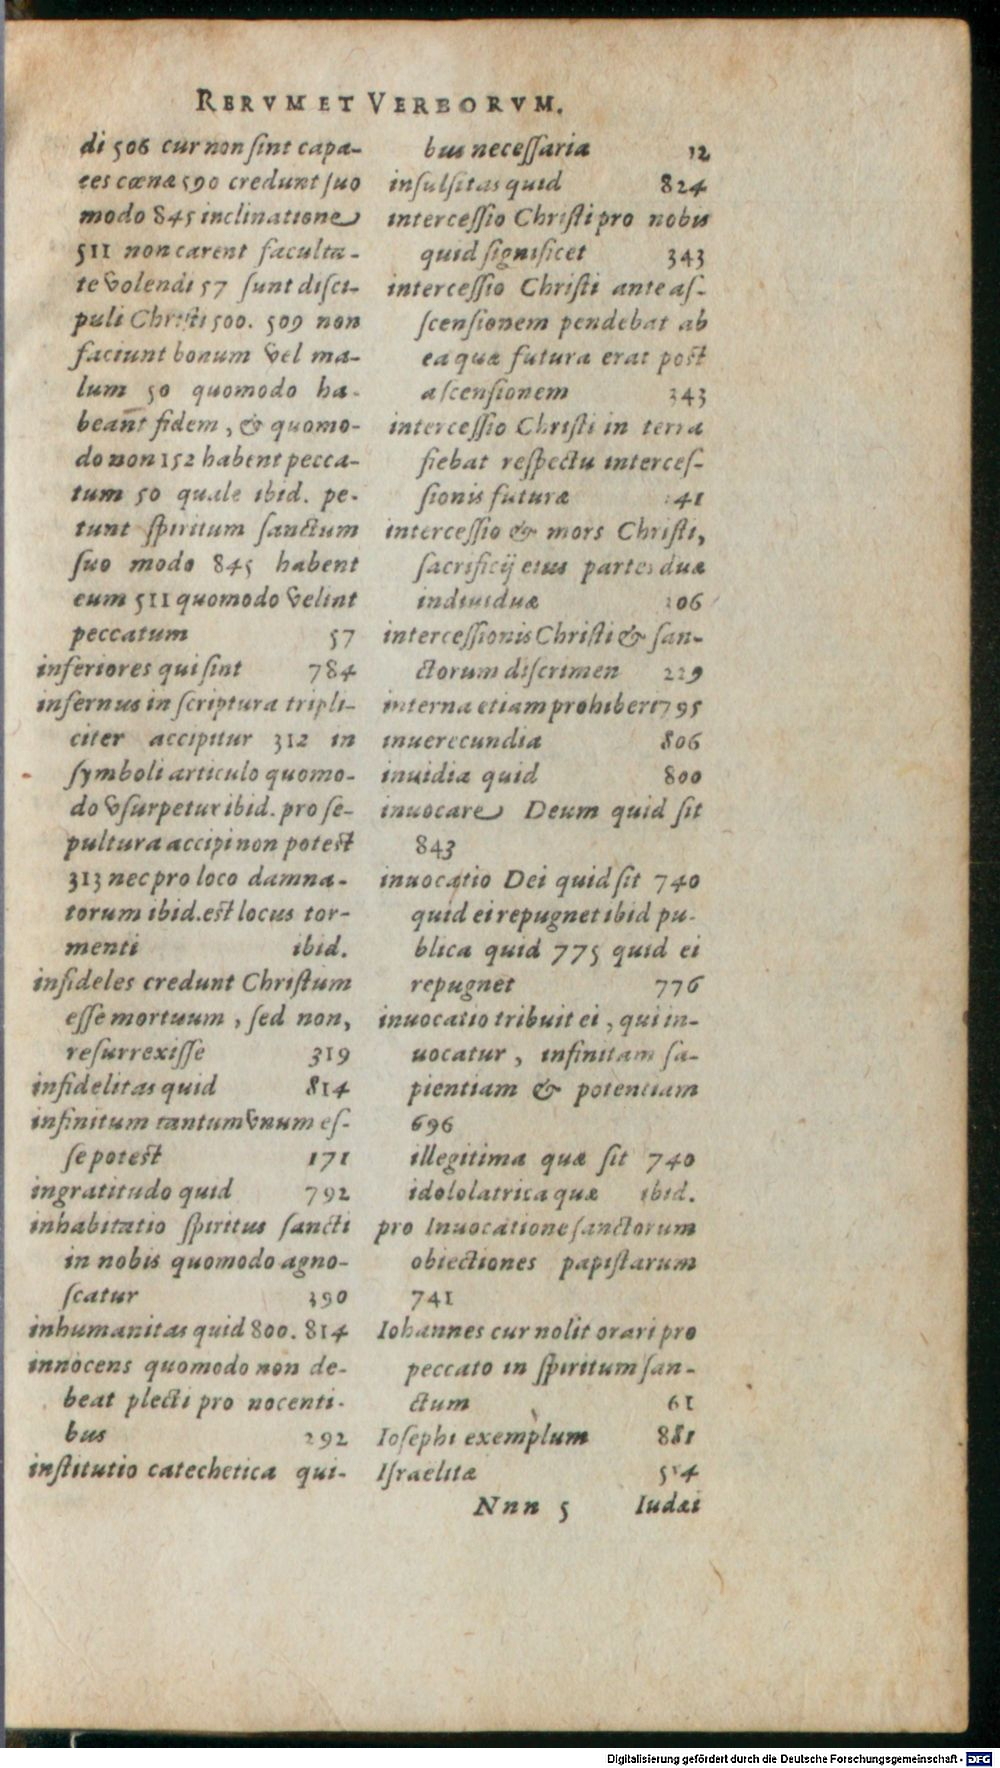 RERVM ET VERBORVM.
di 506 cur non ſint capa-
ces cœnæ 590 credunt ſuo
modo 845 inclinatione
511 non carent faculta-
te volendi 57 ſunt diſci-
puli Chriſti 500. 509 non
faciunt bonum vel ma-
lum 50 quomodo ha-
beant fidem, & quomo-
do non 152 habent pecca-
tum 50 quale ibid. pe-
tunt ſpiritum ſanctum
ſuo modo 845 habent
eum 511 quomodo velint
peccatum 57
inferiores qui ſint 784
infernus in ſcriptura tripli-
citer accipitur 312 in
ſymboli articulo quomo-
do vſurpetur ibid. pro ſe-
pultura accipi non poteſt
313 nec pro loco damna-
torum ibid. eſt locus tor-
menti ibid.
infideles credunt Chriſtum
eſſe mortuum, ſed non,
reſurrexiſſe 319
infidelitas quid 814
infinitum tantum vnum eſ-
ſe poteſt 171
ingratitudo quid 792
inhabitatio ſpiritus ſancti
in nobis quomodo agno-
ſcatur 390
inhumanitas quid 800. 814
innocens quomodo non de-
beat plecti pro nocenti-
bus 292
inſtitutio catechetica qui-
bus neceſſaria 12
inſulſitas quid 824
interceſſio Chriſti pro nobis
quid ſignificet 343
interceſſio Chriſti ante aſ-
ſcenſionem pendebat ab
ea quæ futura erat poſt
aſcenſionem 343
interceſſio Chriſti in terra
fiebat reſpectu interceſ-
ſionis futuræ
interceſſio & mors Chriſti,
ſacrificij eius partes duæ
indiuiduæ
interceſſionis Chriſti & ſan-
ctorum diſcrimen 229
interna etiam prohiberi 795
inuerecundia 806
inuidia quid 800
inuocare Deum quid ſit
843
inuocatio Dei quid ſit 740
quid ei repugnet ibid pu-
blica quid 775 quid ei
repugnet 776
inuocatio tribuit ei, qui in-
uocatur, infinitam ſa-
pientiam & potentiam
696
illegitima quæ ſit 740
idololatrica quæ ibid.
pro Inuocatione ſanctorum
obiectiones papiſtarum
741
Iohannes cur nolit orari pro
peccato in ſpiritum ſan-
ctum 61
Ioſephi exemplum 881
Iſraelitæ
Nnn 5 Iudæi
Digitalisierung gefördert durch die Deutsche Forschungsgemeinschaft - DFG